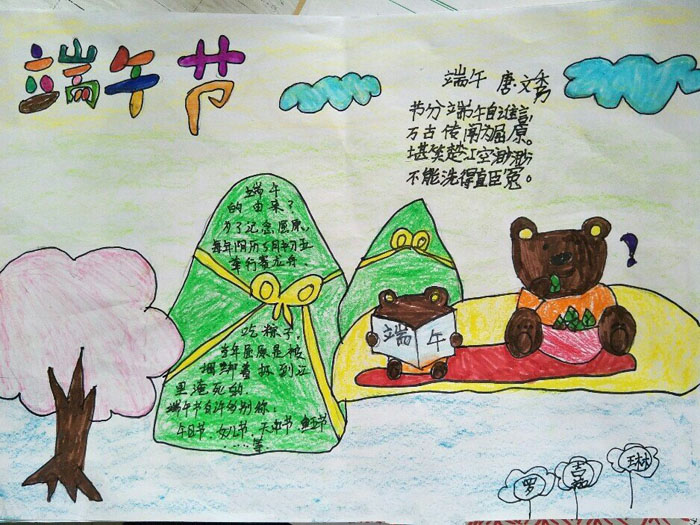 端午节
端午 唐·文秀
节分端午自谁言,
万古传闻为屈原。
堪笑楚江空渺渺
不能洗得直臣冤。
端午
的由来?
为了记念屈原。
每年阴历5月初五
举行赛龙舟
吃粽子,
当年屈原是被
绑着扔到江
里淹死的
端午节有许多别你:
午日节、女儿节、天中节
……等
端 午
!
罗 嘉 琳